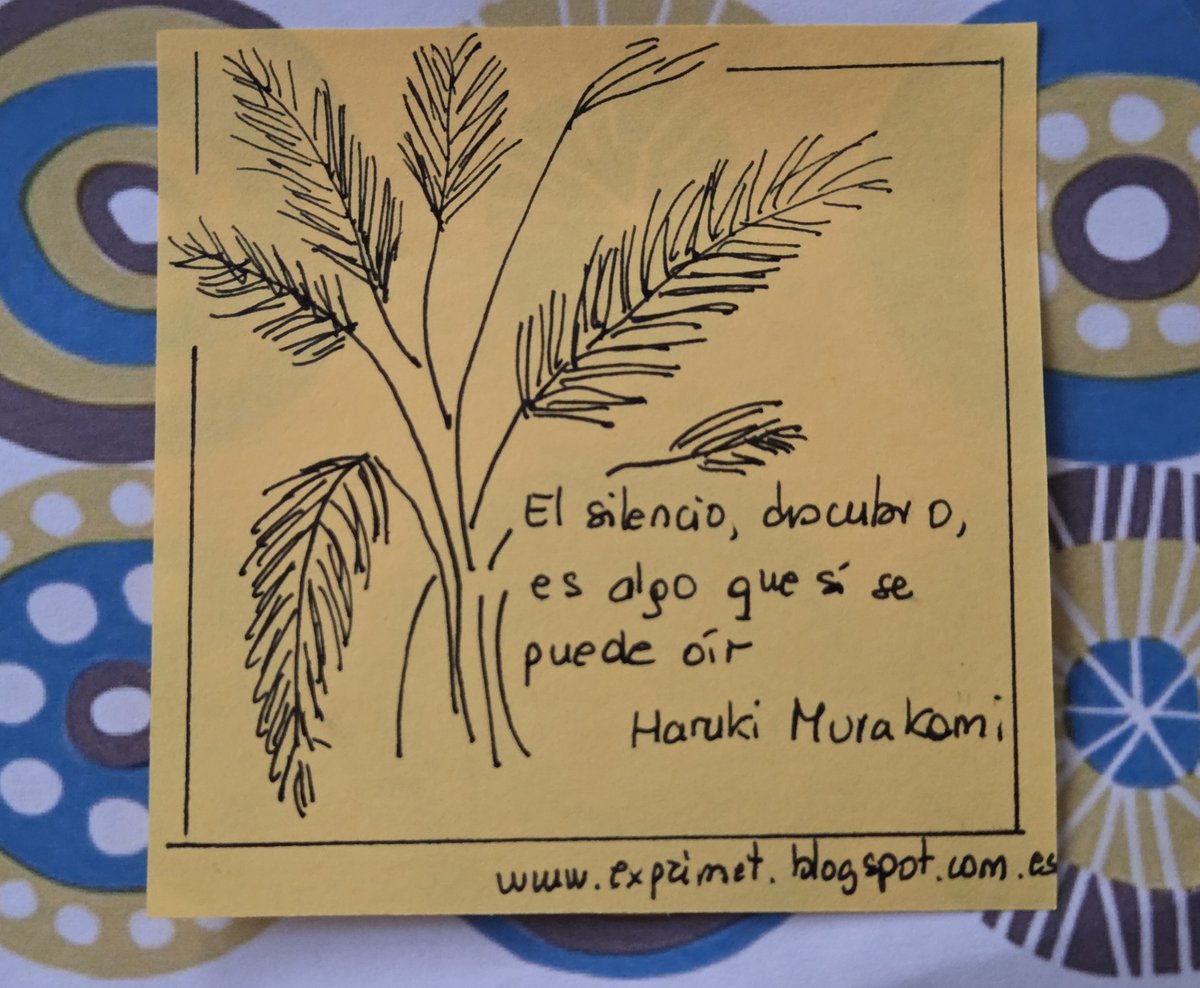 El silencio, descubro,
es algo que sí se
puede oír
Haruki Murakami
www.exprimet.blogspot.com.es